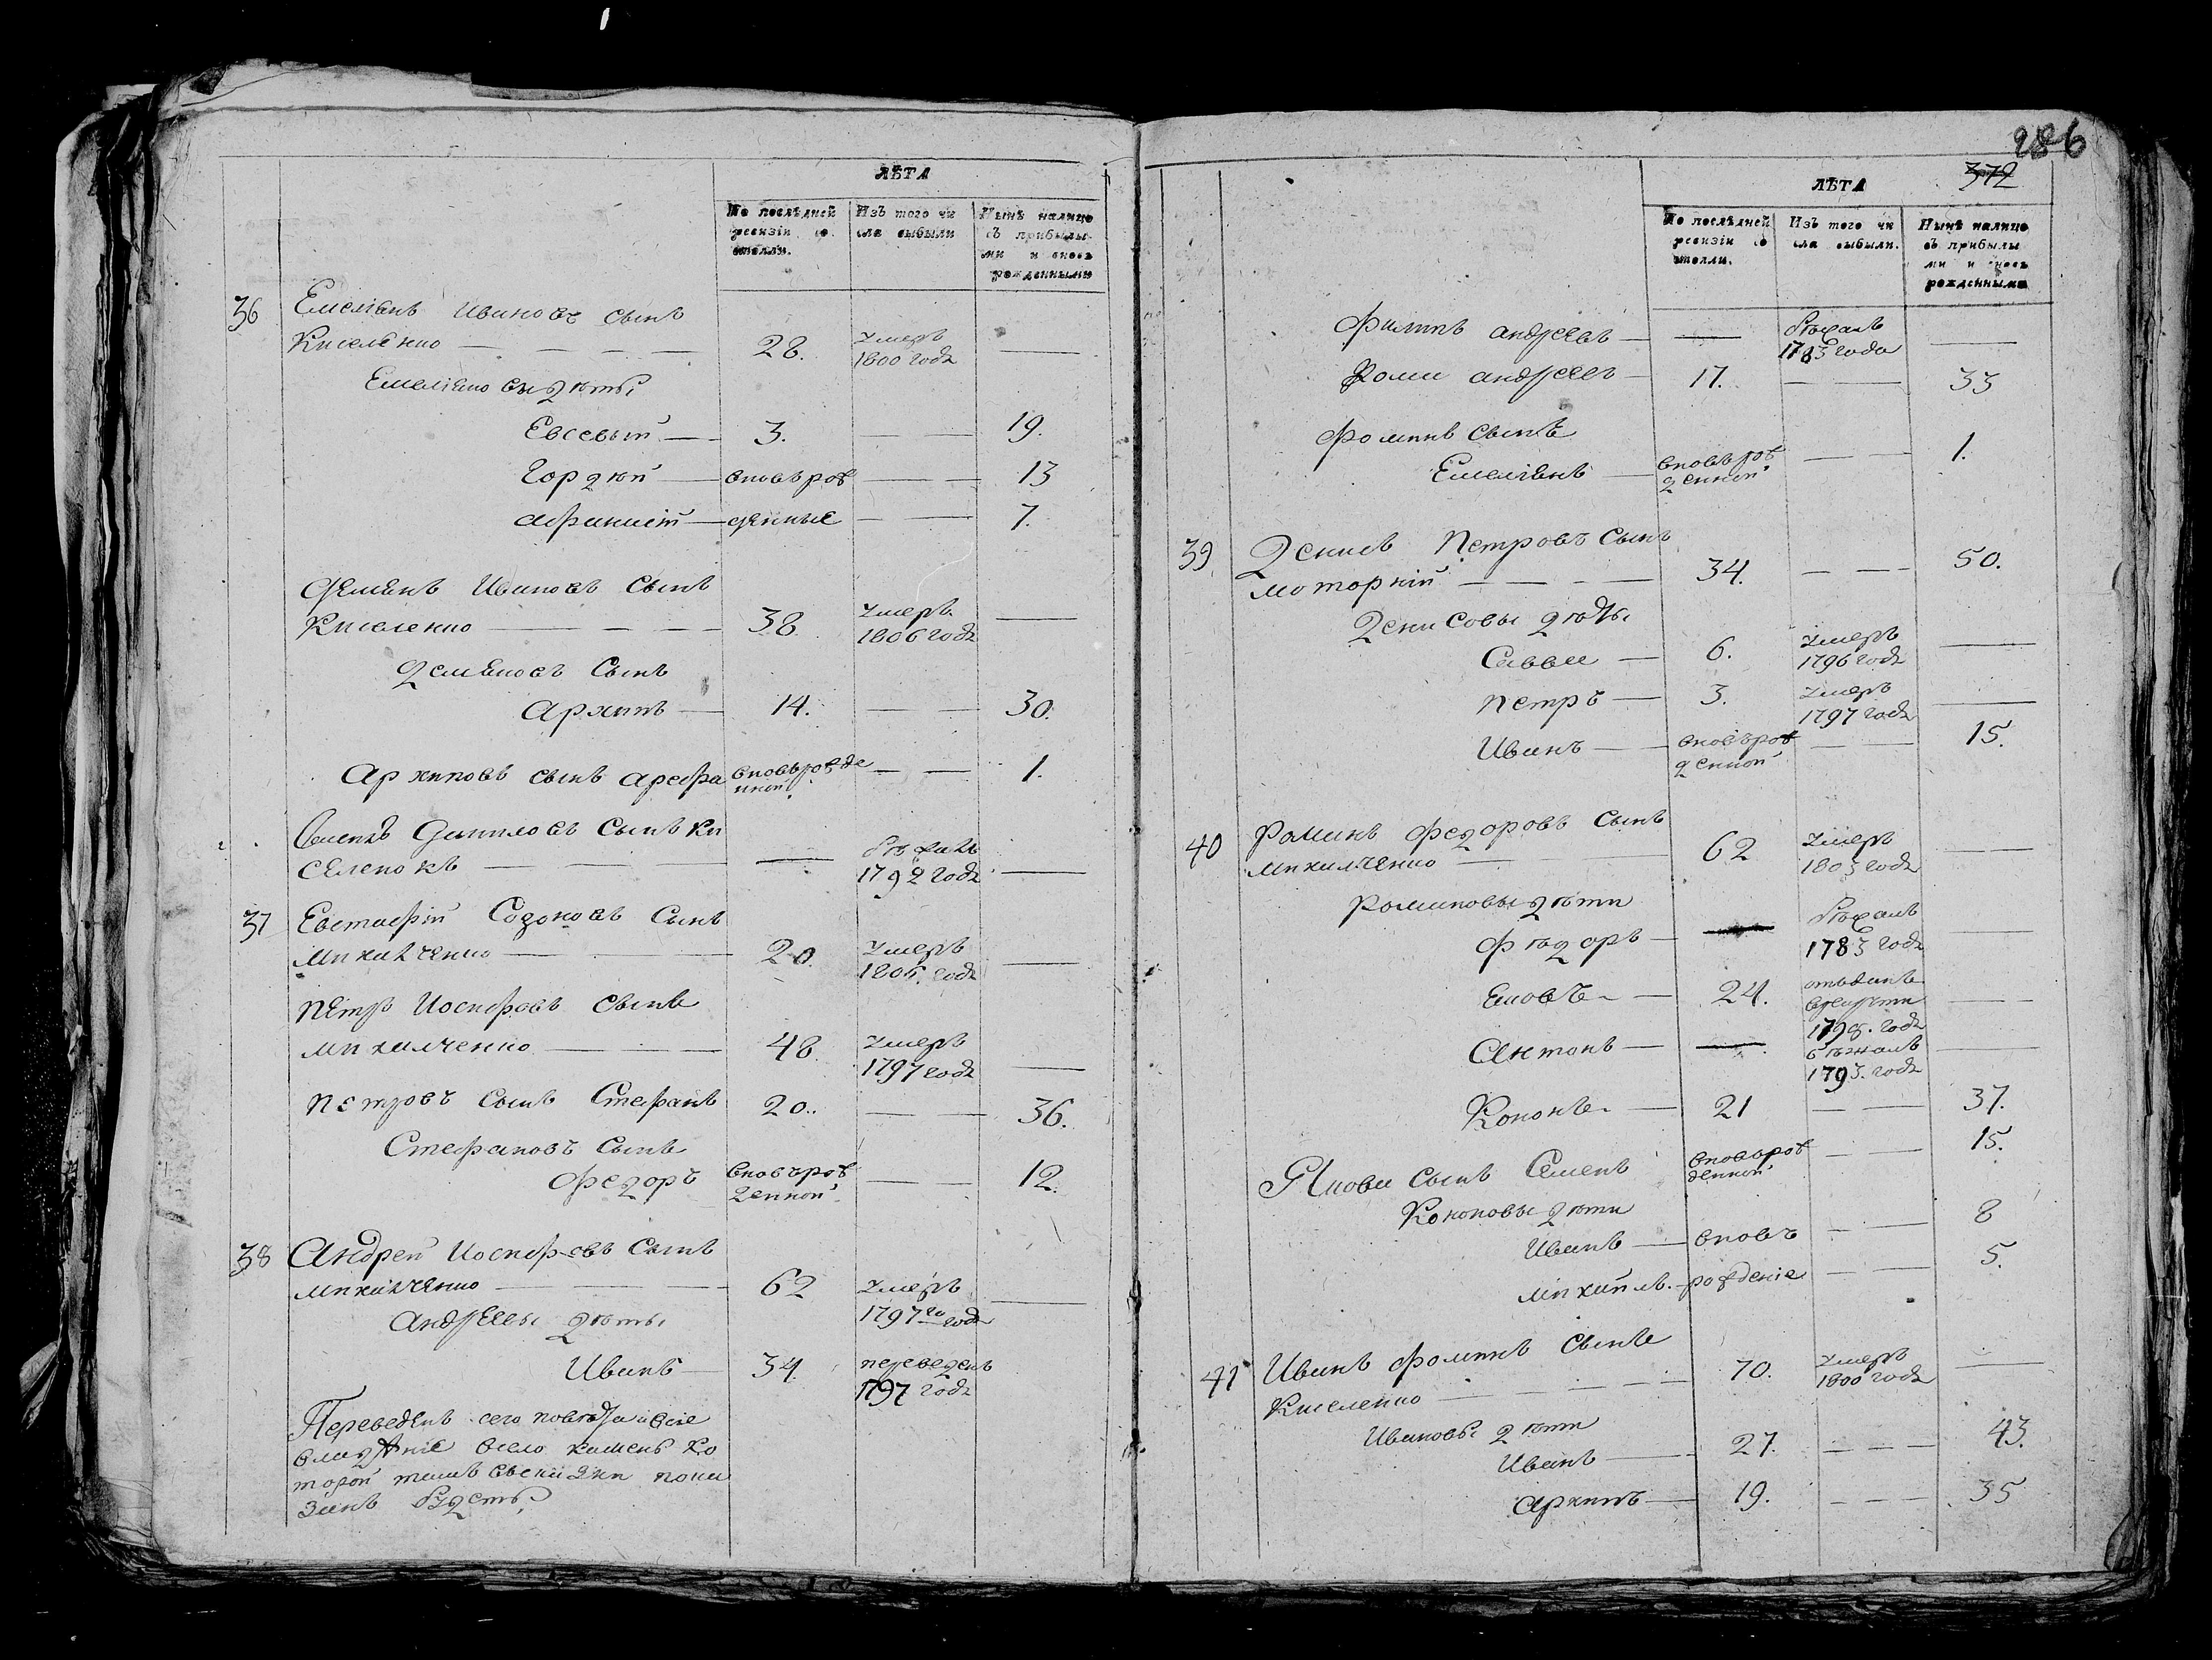 ЛѢТА
По послѣдней ревизіи состояли.
Изъ того числа выбыли
Нынѣ налицо съ прибылыми и вновь рожденными
36 Емелiанъ Ивановъ сынъ
Киселенко — 28. умеръ 1800 годa —
Емелiяновы дѣти
Евсевый — 3. — 19.
Гордѣй — вновьрож — 13
Афанасiй — денные — 7.
Демiянъ Ивановъ сынъ
Киселенко — 38. умеръ 1806 года —
Демяновъ сынъ
Архипъ — 14. — 30.
Архиповъ сынъ Арефа вновьрожденной — 1.
Семенъ Даниловъ сынъ Ки
селенокъ — — бѣжалъ 1792 года —
37 Евстафiй Созоновъ сынъ
Михалченко — 20. умеръ года —
Петръ Иосифовъ сынъ
Михалченко — 48. умеръ 1797 года —
Петровъ сынъ Стефанъ 20. — 36.
Стефановъ сынъ
Федоръ вновьрожденной — 12.
38 Андрей Иосифовъ сынъ
Михалченко — 62 умеръ 1797 го года —
Андреевы дѣти
Иванъ — 34. переведенъ 1797 года
Переведенъ сего повѣта
владѣніе всело
торой тамъ пока
занъ будетъ
286
372
ЛѢТА
По послѣдней ревизіи состояли.
Изъ того числа выбыли.
Нынѣ налицо съ прибылыми и вновь рожденными
Филипъ Андреевъ — — бѣжалъ 1783 года —
Фома Андреевъ — 17. — 33
Фоминъ сынъ
Емелiянъ — вновьрожденной — 1.
39 Денисъ Петровъ сынъ
Моторнiй — 34. — 50.
Денисовы дѣты
Савва — 6. умеръ 1796 года —
Петръ — 3. умеръ 1797 года —
Иванъ — вновьрожденной — 15.
40 Романъ Федоровъ сынъ
Михалченко — 62 умеръ 1803 года —
Романовы дѣти
Фѣдоръ — — бѣжалъ 1783 года —
Яковъ — 24. отъданъ врекруты года —
Антонъ — — бѣжалъ 1793. года —
Кононъ — 21 — 37.
Якова сынъ Семенъ вновьрожденной — 15.
Кононовы дѣти
Иванъ — вновъ — 8
Михайлъ — рожденіе — 5.
41 Иванъ Фоминъ сынъ
Киселенко — 70. умеръ 1800 года —
Ивановы дѣти
Иванъ — 27. — 43.
Архипъ — 19. — 35